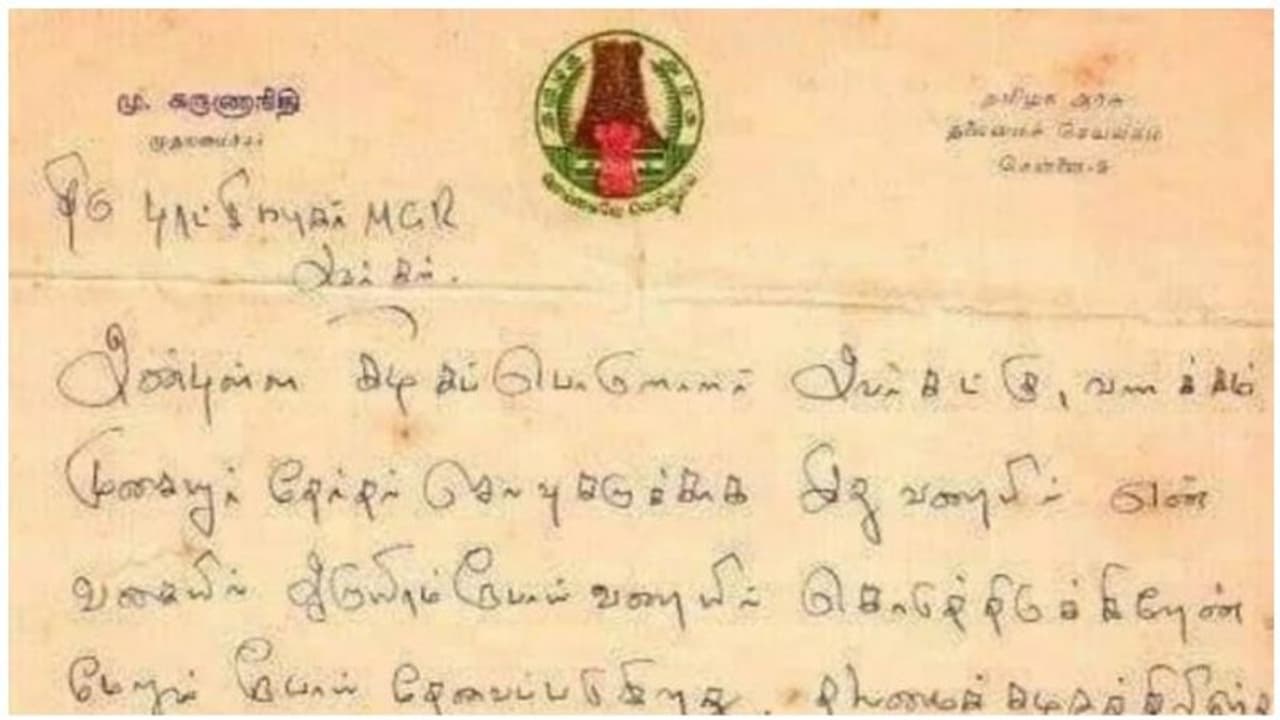 மு. கருணாநிதி
முதலமைச்சர்
தமிழக அரசு
தலைமைச் செயலகம்
சென்னை-9
திரு புரட்சி நடிகர் MGR
அவர்கள்.
அன்புள்ள கழகப் பொருளாளர் அவர்கட்கு, வணக்கம்
முகையூர் தேர்தல் செலவுகளுக்காக இது வரையில் என்
வகையில் இருபதாயிரம் ரூபாய் வரையில் கொடுத்திருக்கிறேன்
மேலும் ரூபாய் தேவைப்படுகிறது. தலைமைக் கழகத்திலிருந்